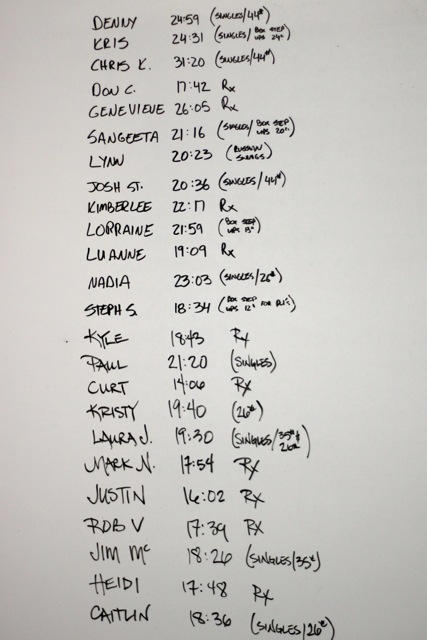 DENNY 24:59 (SINGLES/44#)
KRIS 24:31 (SINGLES/BOX STEP UPS 24")
CHRIS K. 31:20 (SINGLES/44#)
DON C. 17:42 Rx
GENEVIEVE 26:05 Rx
SANGEETA 21:16 (SINGLES/BOX STEP UPS 20")
LYNN 20:23 (RUSSIAN SWINGS)
JOSH ST. 20:36 (SINGLES/44#)
KIMBERLEE 22:17 Rx
LORRAINE 21:59 (BOX STEP UPS 15")
LUANNE 19:09 Rx
NADIA 23:03 (SINGLES/26#)
STEPH S. 18:34 (BOX STEP UPS 12" FOR
KYLE 18:43 Rx
PAUL 21:20 (SINGLES)
CURT 14:06 Rx
KRISTY 19:40 (26#)
LAURA J. 19:30 (SINGLES/35# & 26#)
MARK N. 17:54 Rx
JUSTIN 16:02 Rx
ROB V 17:39 Rx
JIM Mc 18:26 (SINGLES/35#)
HEIDI 17:48 Rx
CAITLIN 18:36 (SINGLES/26#)